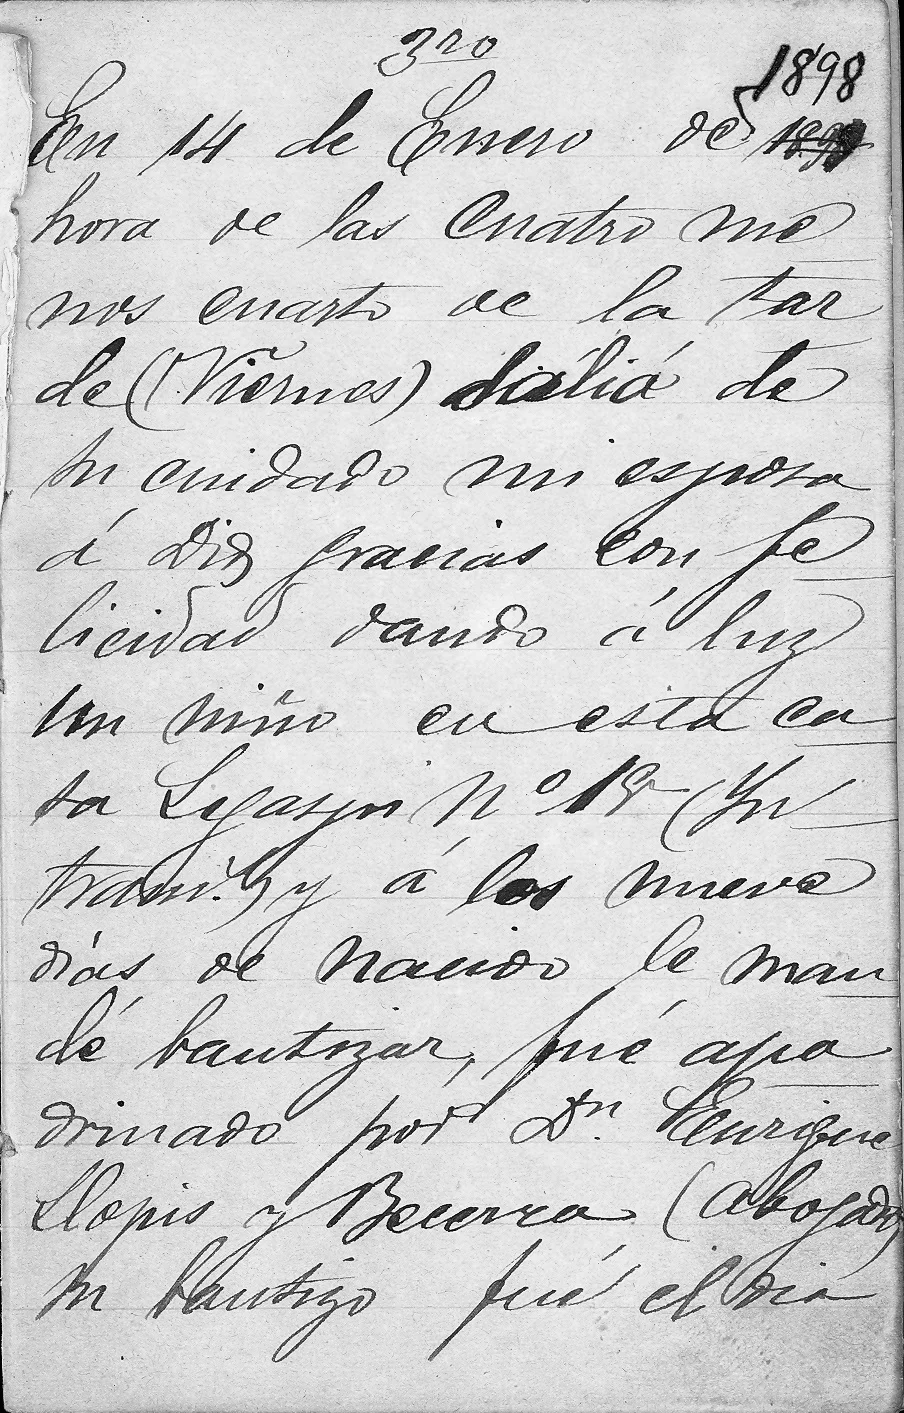 3ro
1898
En 14 de Enero de 1898
hora de las cuatro me
nos cuarto de la tar
de (Viernes) salió de
su cuidado mi esposa
á Dios gracias con fe
licidad dando á luz
un niño en esta ca
sa Legaspi Nº 18 (Yn
tram.) y á los nueve
días de nacido le man
dé bautizar, fué apa
drinado por Dn. Enrique
Llopis y Becerra (abogado)
su bautizo fué el dia